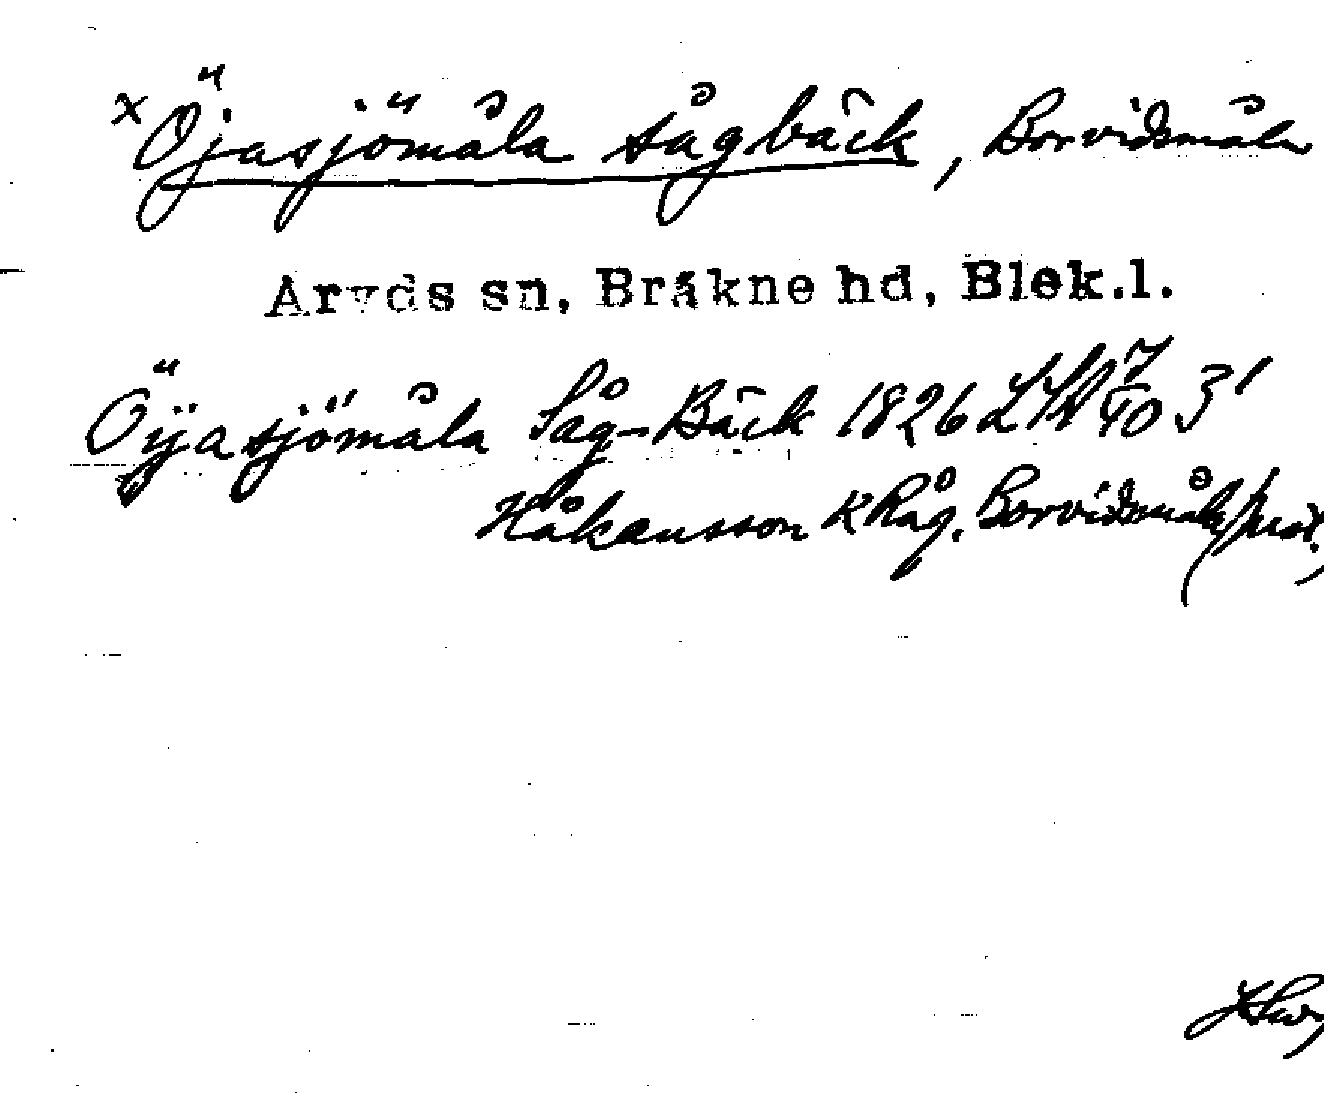 x Öjasjömåla sågbäck, Borvidsmåla
Aryds sn, Bräkne hd, Blek.l.
Öÿasjömåla Såg-Bäck 1826 LSA 7/10 3'
Håkansson K Råg. Borvidsmåla